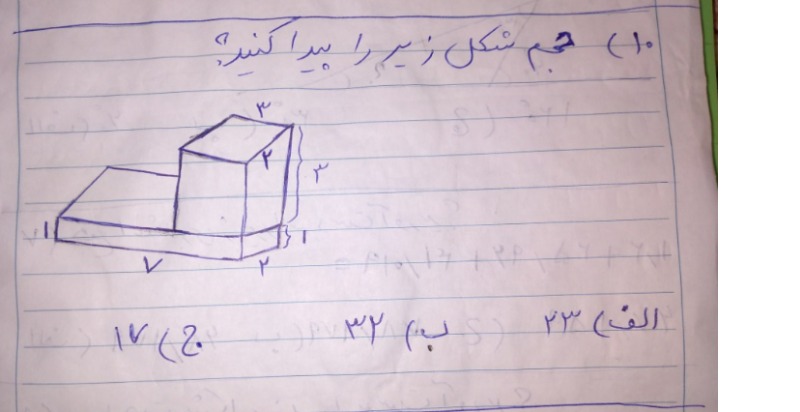 ۱۰) حجم شکل زیر را پیدا کنید؟
۳
۲
۳
۱
۱
۷
۲
الف) ۲۳ ب) ۳۲ ج) ۱۷